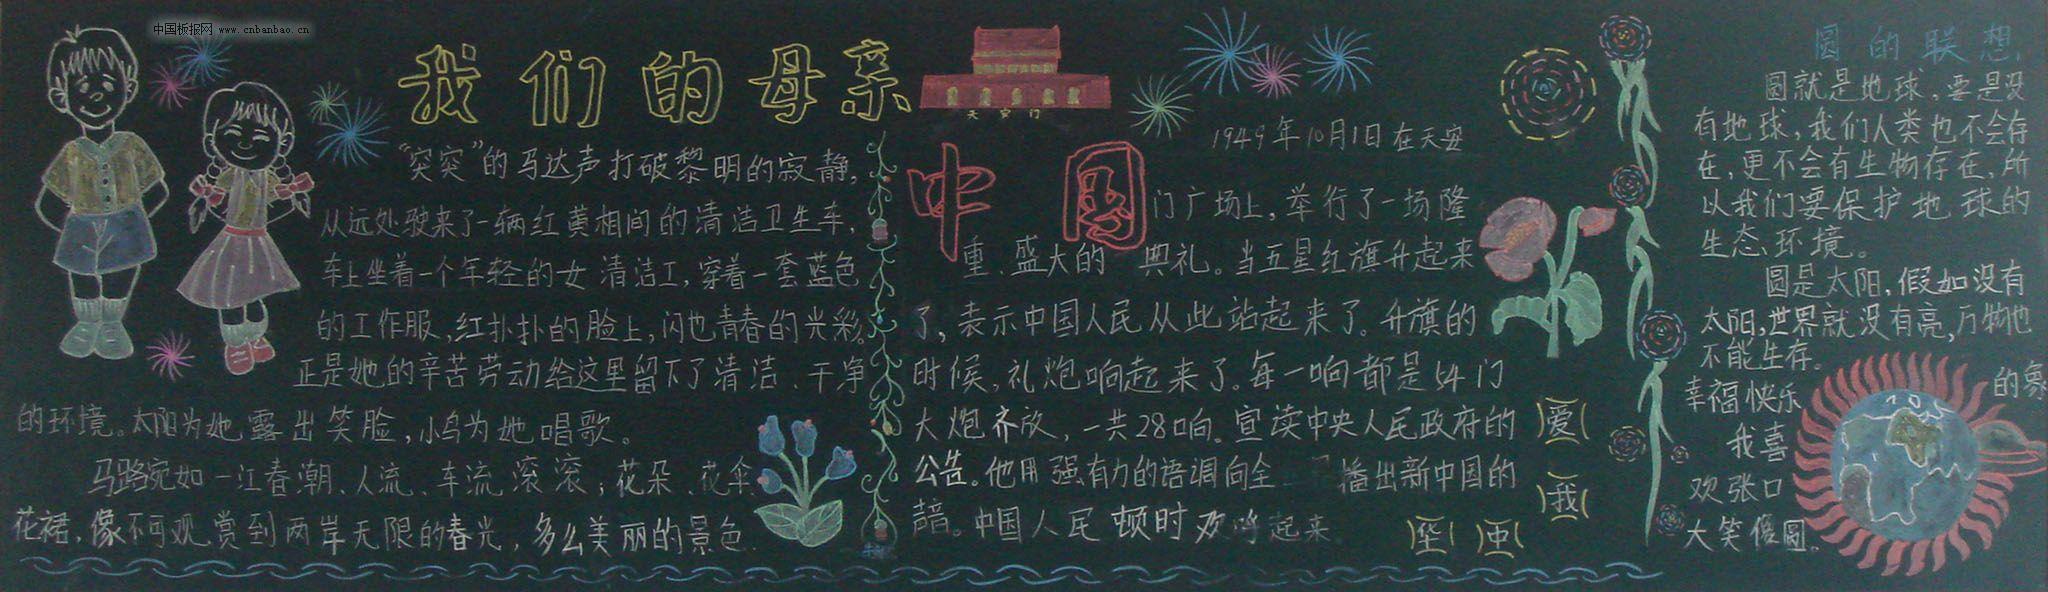 中国板报网 www.cnbanbao.cn
我们的母亲
天安门
中国
“突突”的马达声打破黎明的寂静,
从远处驶来了一辆红黄相间的清洁卫生车,
车上坐着一个年轻的女清洁工,穿着一套蓝色
的工作服,红扑扑的脸上,闪也青春的光彩。
正是她的辛苦劳动给这里留下了清洁、干净
的环境。太阳为她露出笑脸,小鸟为她唱歌。
马路宛如一江春潮、人流、车流滚滚;花朵、花伞
花裙,像不可观赏到两岸无限的春光,多么美丽的景色
1949年10月1日在天安
门广场上,举行了一场隆
重、盛大的 典礼。当五星红旗升起来
了,表示中国人民从此站起来了。升旗的
时候,礼炮响起来了。每一响都是54门
大炮齐放,一共28响。宣读中央人民政府的
公告。他用强有力的语调向全 播出新中国的
声音。中国人民顿时欢呼起来
爱
我
中
华
圆的联想
圆就是地球,要是没
有地球,我们人类也不会存
在,更不会有生物存在,所
以我们要保护地球的
生态环境。
圆是太阳,假如没有
太阳,世界就没有亮,万物也
不能生存。
的象
幸福快乐
我喜
欢张口
大笑像圆。